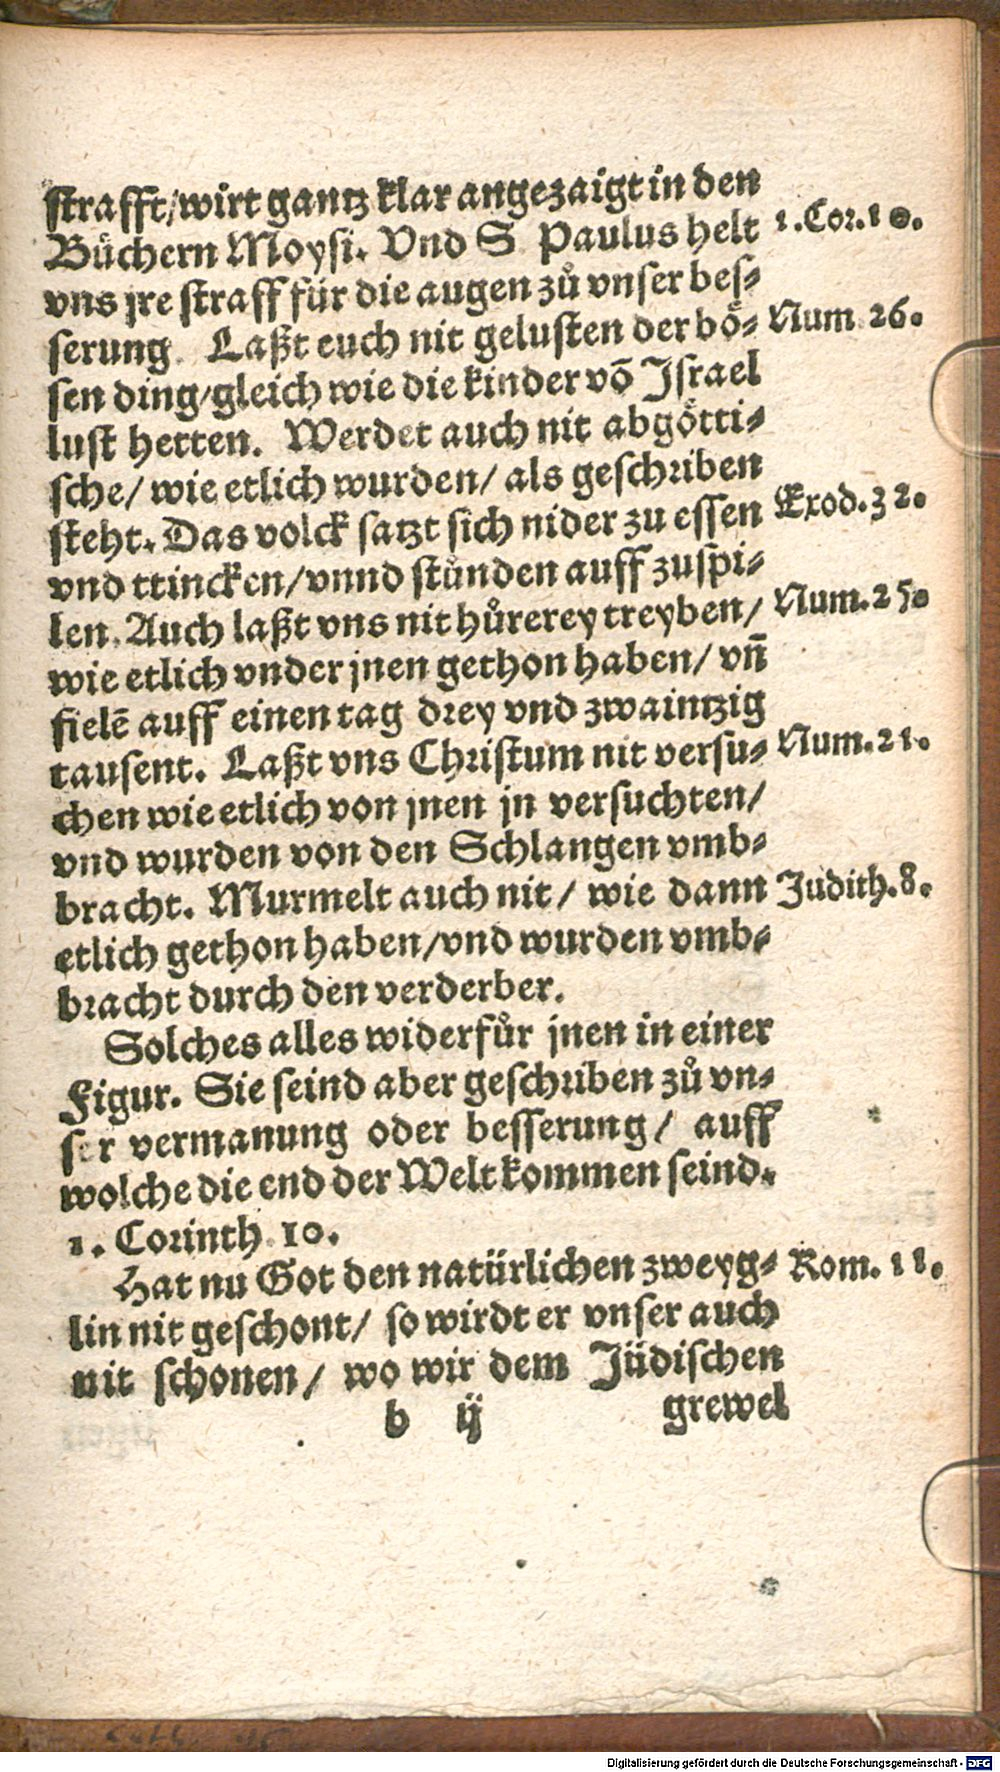 strafft/wirt gantz klar angezaigt in den
Büchern Moysi. Vnd S. Paulus helt 1.Cor.10.
vns jre straff für die augen zů vnser bes⸗
serung. Laßt euch nit gelusten der bö⸗ Num 26.
sen ding/gleich wie die kinder vō Israel
lust hetten. Werdet auch nit abgötti⸗
sche/ wie etlich wurden/ als geschriben
steht. Das volck satzt sich nider zu essen Exod.32.
vnd ttincken/vnnd stůnden auff zuspi⸗
len. Auch laßt vns nit hůrerey treyben/ Num.25.
wie etlich vnder jnen gethon haben/ vn̄
fielē auff einen tag drey vnd zwaintzig
tausent. Laßt vns Christum nit versu⸗ Num.21.
chen wie etlich von jnen jn versuchten/
vnd wurden von den Schlangen vmb⸗
bracht. Murmelt auch nit/ wie dann Judith.8.
etlich gethon haben/vnd wurden vmb⸗
bracht durch den verderber.
Solches alles widerfůr jnen in einer
Figur. Sie seind aber geschriben zů vn⸗
ser vermanung oder besserung/ auff
wolche die end der Welt kommen seind.
1. Corinth. 10.
Hat nu Got den natürlichen zweyg⸗ Rom. 11.
lin nit geschont/ so wirdt er vnser auch
nit schonen/ wo wir dem Jüdischen
b ij grewel
Digitalisierung gefördert durch die Deutsche Forschungsgemeinschaft - DFG